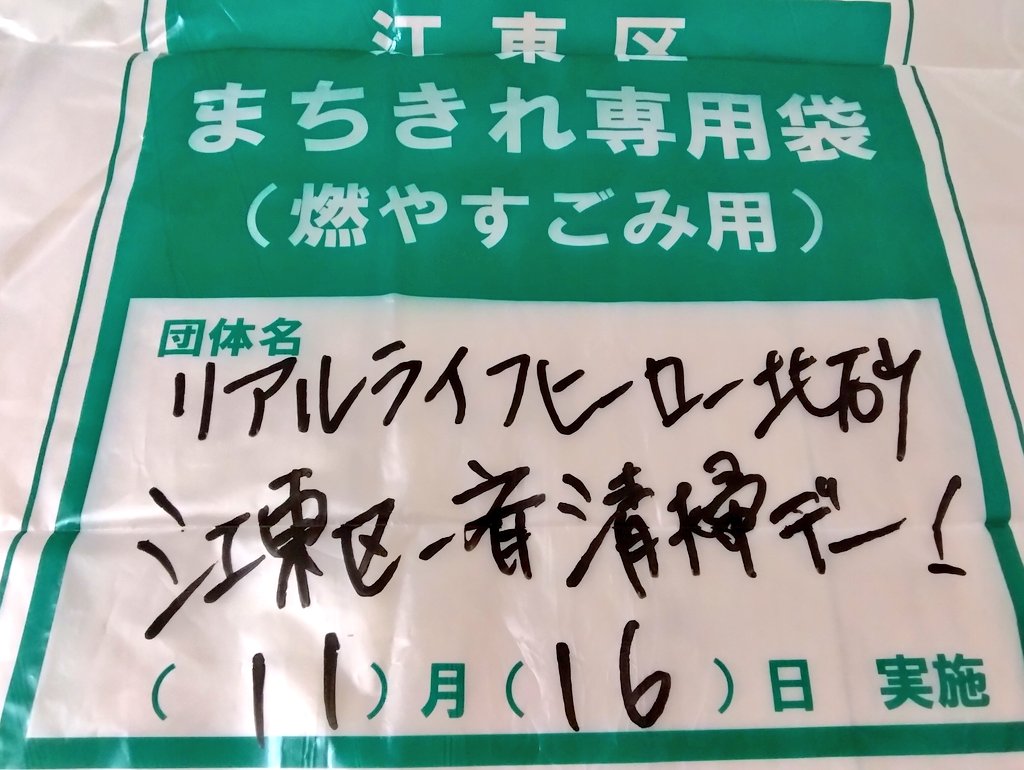 江東区
まちきれ専用袋
(燃やすごみ用)
団体名
リアルライフヒーロー北砂
江東区一斉清掃デー!
(11)月(16)日 実施